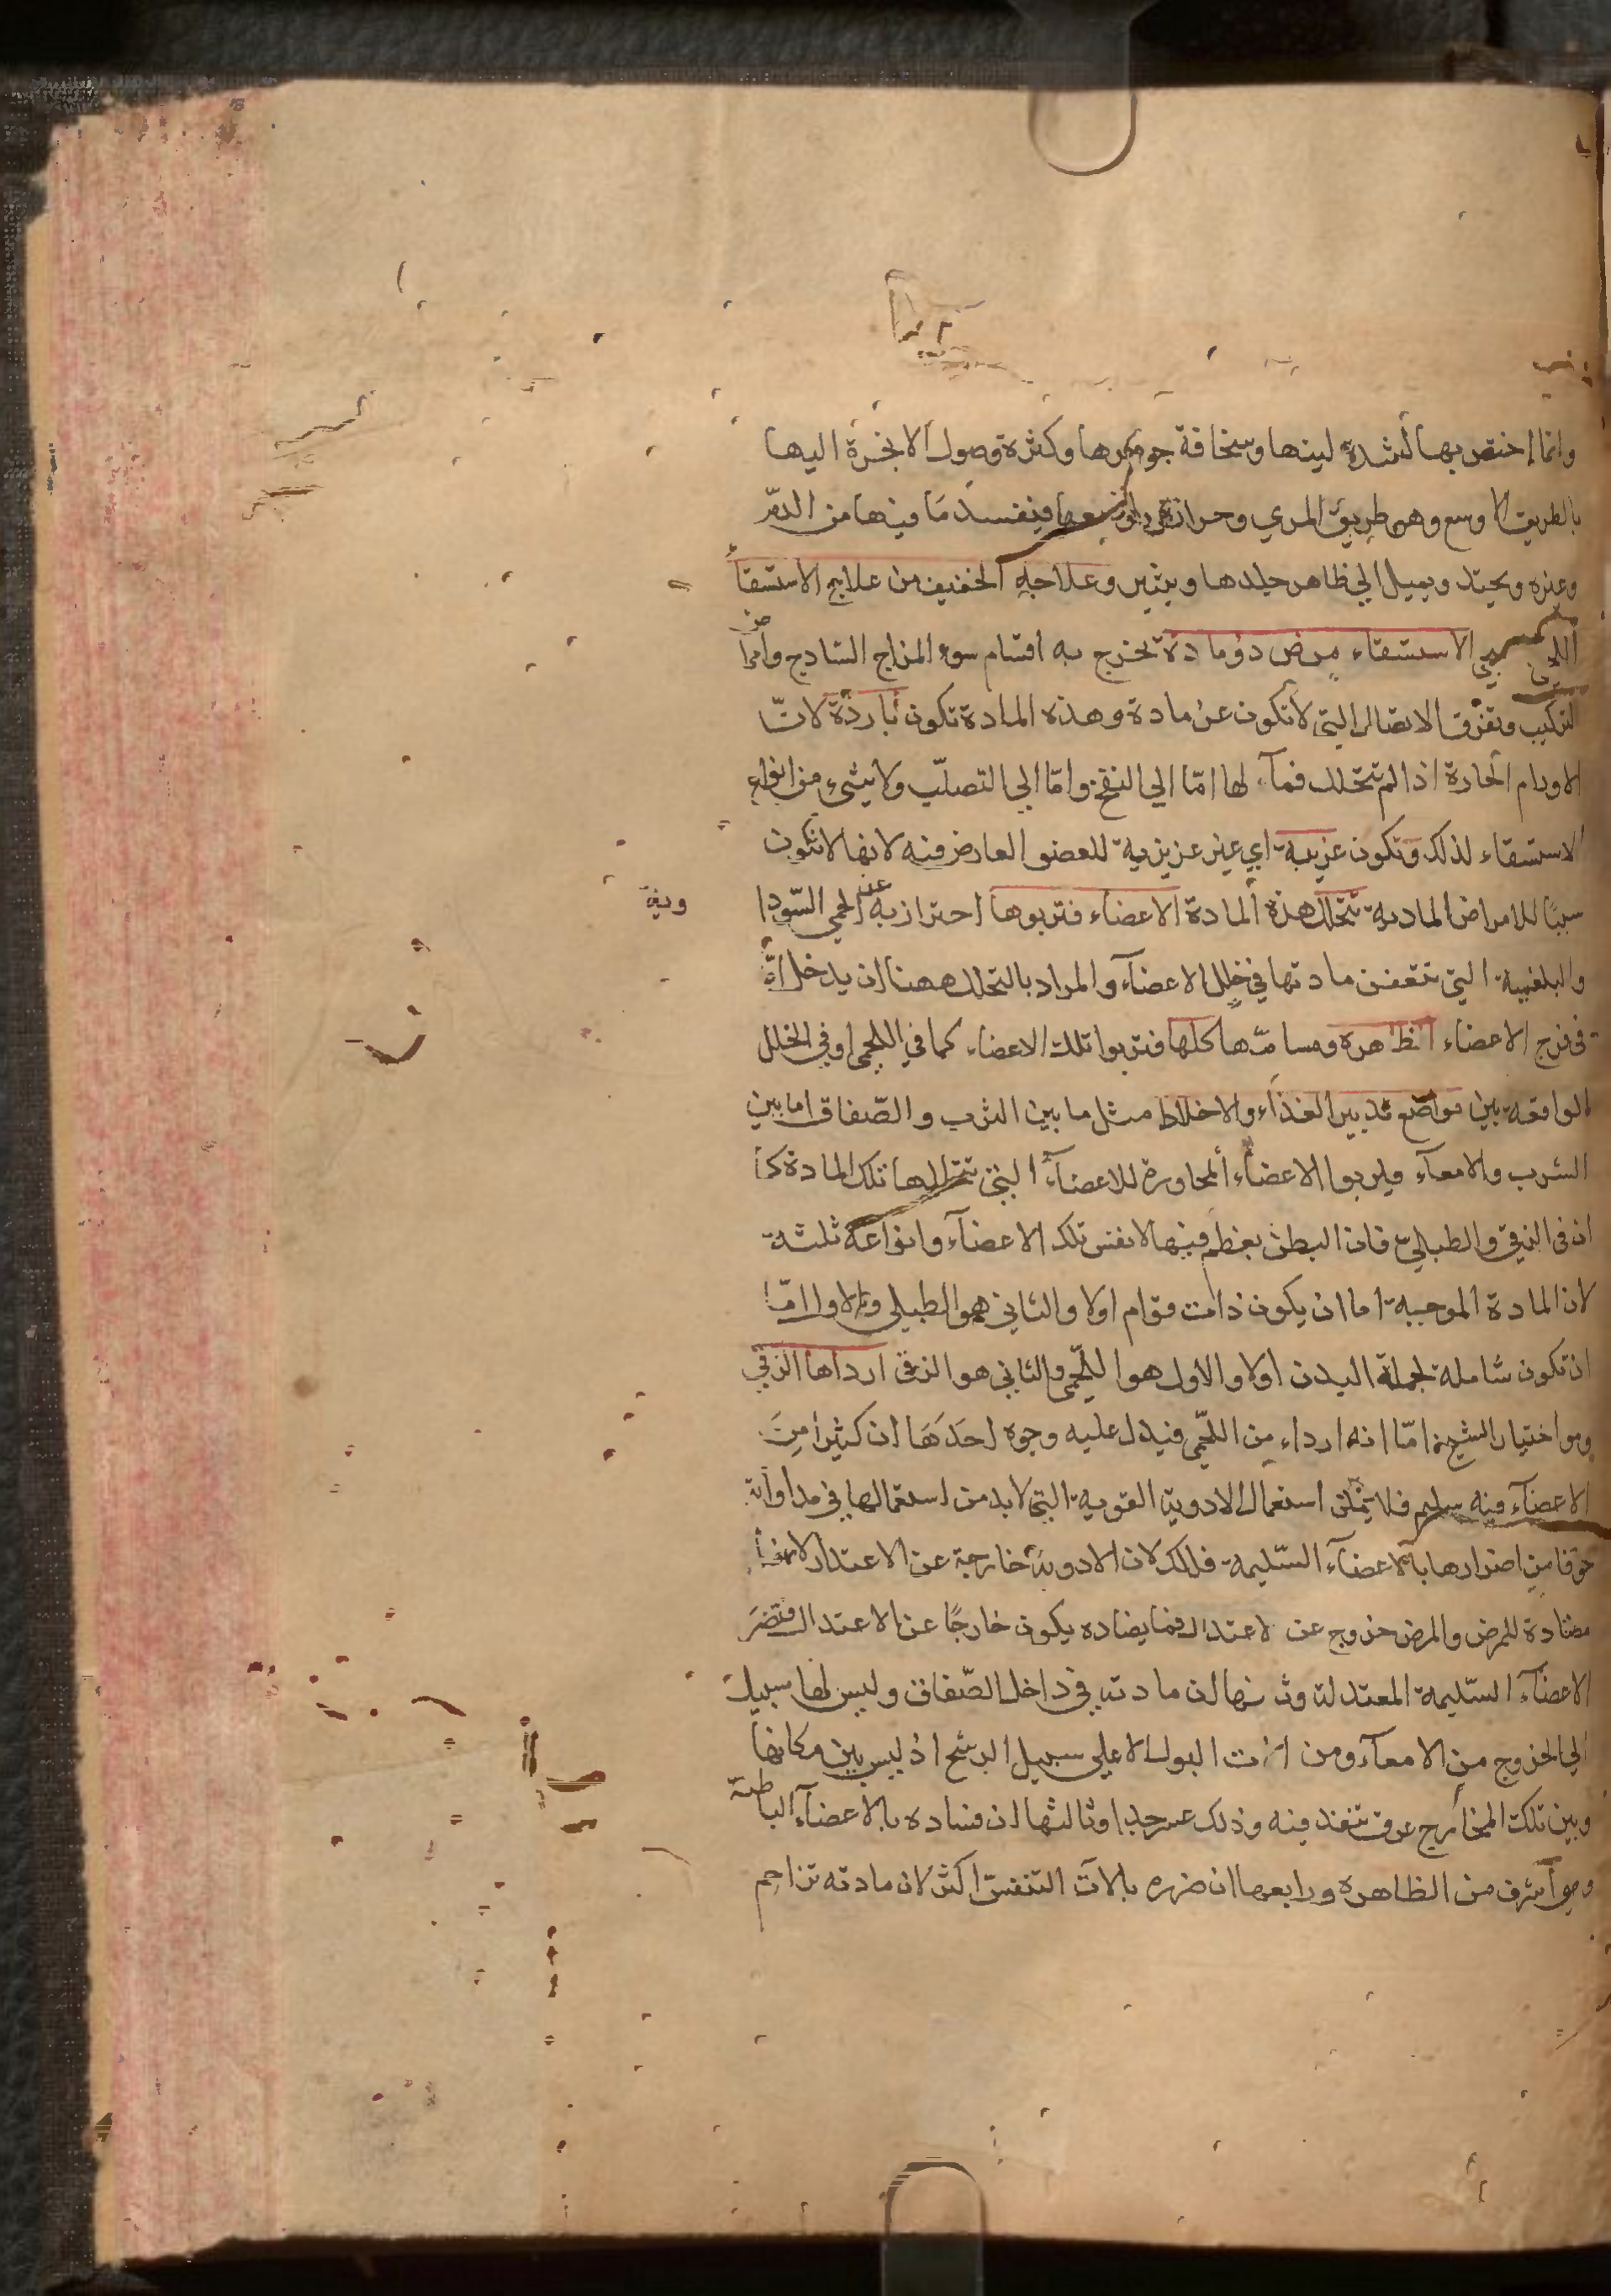 وانما اختص بها لشدة لينها وسخافة جوهرها وكثرة وصول الابخرة اليها
بالطريق الاوسع وهو طريق المري وحرارتها فيفسد ما فيها من الدم
وغيره ويحتد ويميل الي ظاهر جلدها ويبثر وعلاجه الخفيف من علاج الاستسقا
اللحمي الاستسقاء مرض ذو مادة تخرج به اقسام سوء المزاج الساذج وامراض
التركيب وتفرق الاتصال التي لا تكون عن مادة وهذه المادة تكون باردة لان
الاورام الحارة اذا لم تتحلل فمآلها اما الي النضج واما الي التصلب ولا شيء من انواع
الاستسقاء لذلك وتكون غريبة اي غير غريزية للعضو العارض فيه لانها لا تكون
سببا للامراض المادية تتخلل هذه المادة الاعضاء فتربوها احترازبه عن الحمي السودا
وية
والبلغمية التي تتعفن مادتها في خلل الاعضآء والمراد بالتخلل ههنا ان يدخل اما
في فرج الاعضاء الظاهره ومسامها كلها فتربوا تلك الاعضاء كما في اللحمي او في الخلل
الواقعة بين مواضع تدبير الغذاء والاخلاط مثل ما بين الثرب والصفاق اما بين
الثرب والامعآء فيربوا الاعضاء المجاورة للاعضآء التي تتخللها تلك المادة كما
ان في الزقي والطبلي فان البطن يعظم فيها لا نفس تلك الاعضآء وانواعه ثلثة
لان المادة الموجبة اما ان يكون ذات قوام اولا والثاني هو الطبلي والاول اما
ان تكون شاملة لجملة البدن اولا والاول هو اللحمي والثاني هو الزقي ارداها الزقي
وهو اختيار الشيخ اما انه ارداء من اللحمي فيدل عليه وجوه احدها ان كثيرا من
الاعضآء فيه سليم فلا يمكن استعمال الادوية القوية التي لا بد من استعمالها في مداواته
خوفا من اضرارها بالاعضآء السليمة فلذلك لان الادوية خارجة عن الاعتدال لانها
مضادة للمرض والمرض خروج عن الاعتدال فما يضاده يكون خارجا عن الاعتدال فتضر
الاعضآء السليمة المعتدلة وثانيها ان مادته في داخل الصفاق وليس لها سبيل
الي الخروج من الامعآء ومن الات البول الا علي سبيل الرشح اذ ليس بين مكانها
وبين تلك المخارج عرق تنفذ فيه وذلك عسر جدا وثالثها ان فساده بالاعضآء الباطنة
وهي اشرف من الظاهره ورابعها ان ضرره بالات التنفس اكثر لان مادته تزاحم